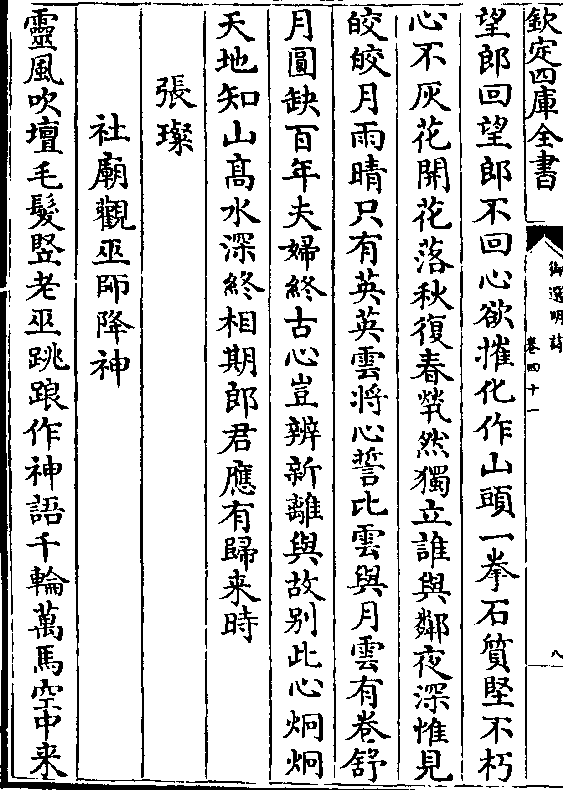 欽定四庫全書
御選明詩
卷四十一
八
望郎回望郎不回心欲摧化作山頭一拳石質堅不朽
心不灰花開花落秋復春煢然獨立誰與鄰夜深惟見
皎皎月雨晴只有英英雲將心誓比雲與月雲有卷舒
月圓缺百年夫婦終古心豈辨新離與故别此心炯炯
天地知山髙水深終相期郎君應有歸来時
張璨
社廟觀巫師降神
靈風吹壇毛髮竪老巫跳踉作神語千輪萬馬空中来